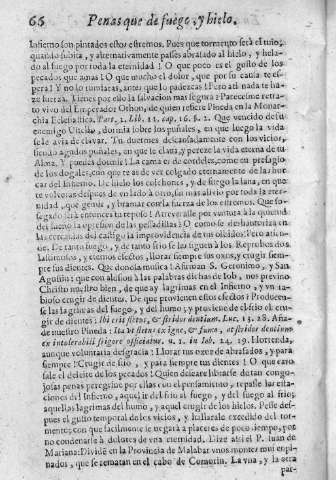 66 Penas que de fuego, y hielo.
Infierno son pintados estos estremos. Pues que tormento será el tuio,
quando subita, y alternativamente passes abrasado al hielo, y hela-
do al fuego por toda la eternidad! O que poco es el gusto de los
pecados que aqui! O que mucho el dolor, que por su causa te es-
pera! Y no lo rumiaras, antes que lo padezcas! Pero allà nada te ha-
ze fuerza. Tienes por ello la salvacion mas segura? Pareceme retra-
to vivo del Emperador Othon, de quien refiere Pineda en la Monar-
chia Eclesiastica. Part. 2. Lib. 11. cap. 16. §. 2. Que vencido de su
enemigo dormia sobre los puñales, en que luego la vida
se le avia de clavar. Tu duermes descansadamente con los vicios,
siendo agudos puñales, en que te clava, y pereze la vida eterna de tu
Alma. Y puedes dormir! La cama es de cordeles, como en presagio
de los dogales, con que te as de ver colgado eternamente de las hor-
cas del Infierno. De indio los colchones, y de fuego la lana, en que
te volveras despues de un lado à otro, sin mas alivio por toda la eter-
nidad, que gemir, y bramar con la fuerza de los estremos. Que so-
segado será entonces tu reposo! Atreveralle por ventura à la quietud
del sueño la opresion de las pesadillas! O como se deshauziará en
las cercanias del castigo la improvidencia de tus olvidos! Pero atien-
de. De tanto fuego, y de tanto frio se les siguen à los Reprobos dos
lastimosos, y eternos efectos, llorar siempre sus ojos, y crugir siem-
pre sus dientes. Que donosa musica! Afirman S. Geronimo, y San-
Agustin: que con alusion à las palabras dichas de Iob, nos previno
Christo nuestro bien, de que ay lagrimas en el Infierno, y vn ra-
bioso crugir de dientes. De que provienen estos efectos? Producen-
se las lagrimas del fuego, y del humo; y proviene del frio el cru-
gir de dientes: Ibi erit fletus, & stridor dentium. Luc. 13. 28. Aña-
de nuestro Pineda: Ita vt fletus ex igne, & fumo, at stridor dentium
ex intolerabili frigore efficiatur. n. 1. in Iob. 24. 19. Horrenda,
aunque voluntaria desgracia! Llorar tus ojos de abrasados, y para
siempre! Crugir de frio, y para siempre tus dientes! O que caro
sale el deleite de los pecados! Quien deseare librarse de tan congo-
josas penas peregrine por ellas con el pensamiento, repasse las esta-
ciones del Infierno, aquel ir del frio al fuego, y del fuego al frio;
aquellas lagrimas del humo, y aquel crugir de los hielos. Pese des-
pues el gusto temporal de los vicios, y hallarale excedido del tor-
mento, con que facilmente se negará à placeres de poco tiempo, por
no condenarse à dolores de vna eternidad. Dize assi el P. Iuan de
Mariana: Divide en la Provincia de Malabar vnos montes mui empi-
nados, que se rematan en el cabo de Comorin. La vna, y la otra
par-